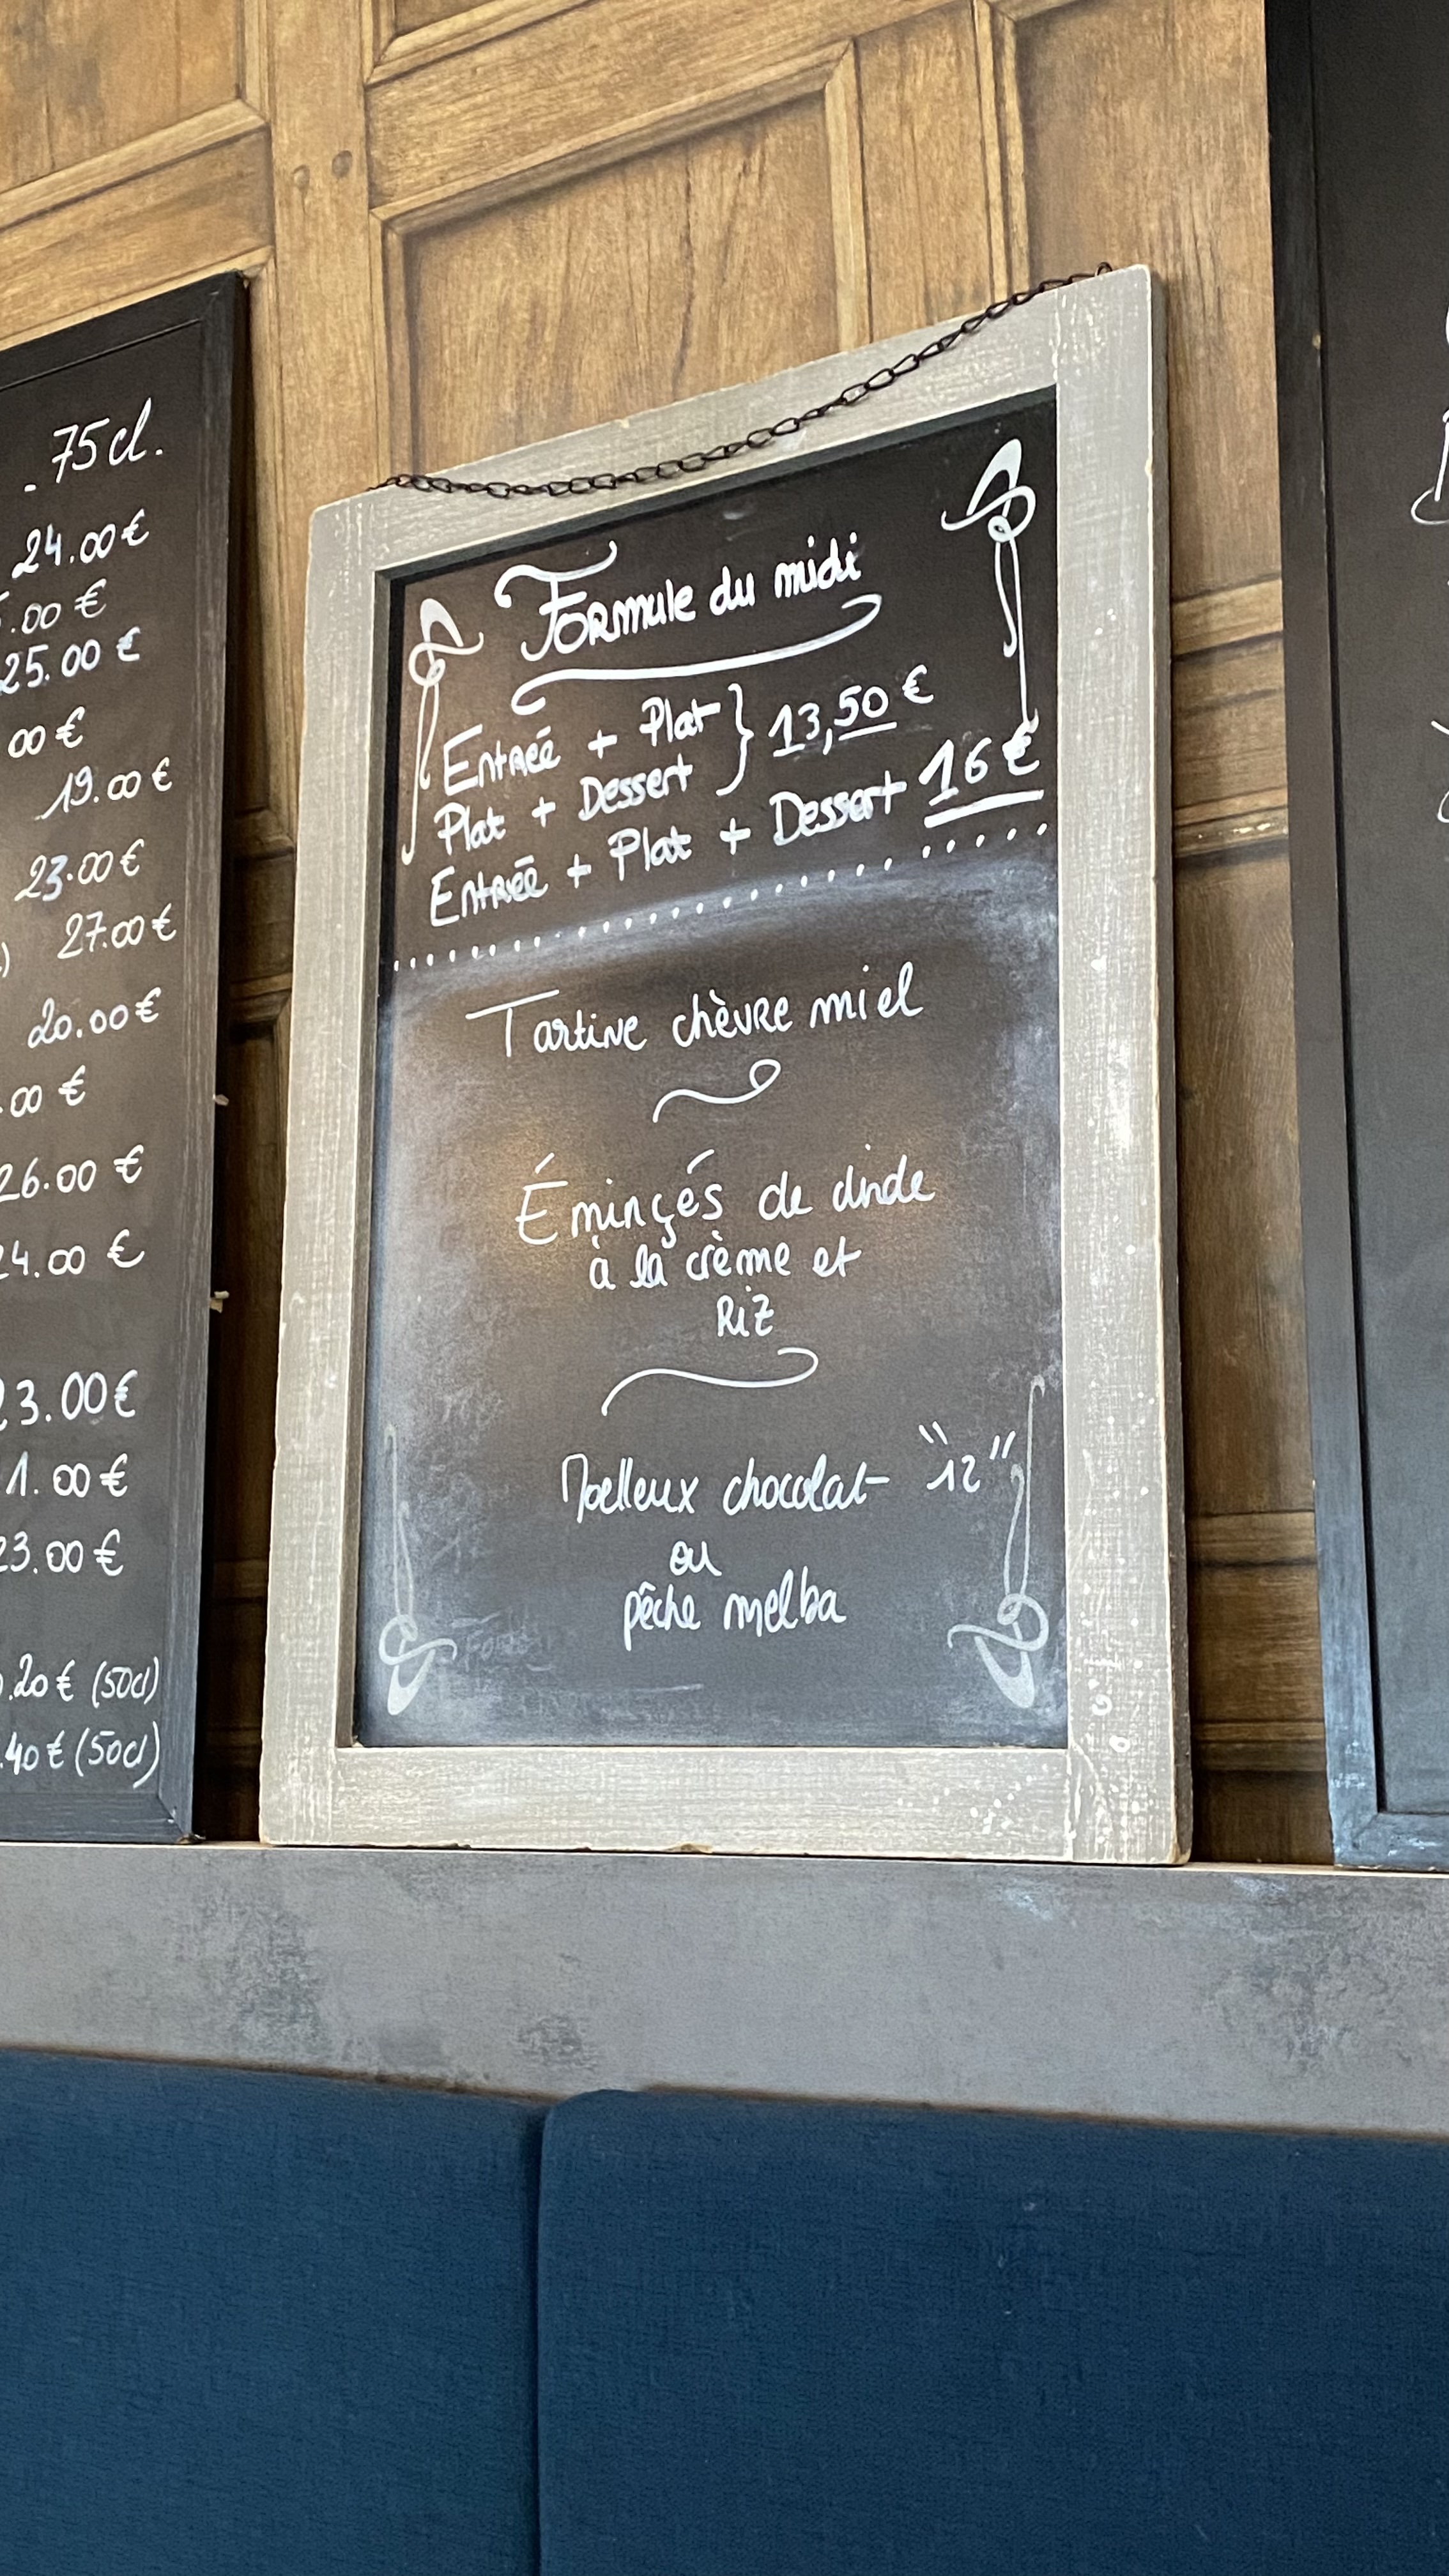 .75cl.
24.00€
.00 €
25.00 €
00 €
19.00 €
23.00 €
) 27.00 €
20.00 €
.00 €
26.00 €
24.00 €
23.00 €
1.00 €
23.00 €
.20 € (50cl)
.40 € (50cl)
Formule du midi
Entrée + Plat } 13,50 €
Plat + Dessert
Entrée + Plat + Dessert 16 €
Tartine chèvre miel
Éminçés de dinde
à la crème et
Riz
Moelleux chocolat "12"
ou
pêche melba